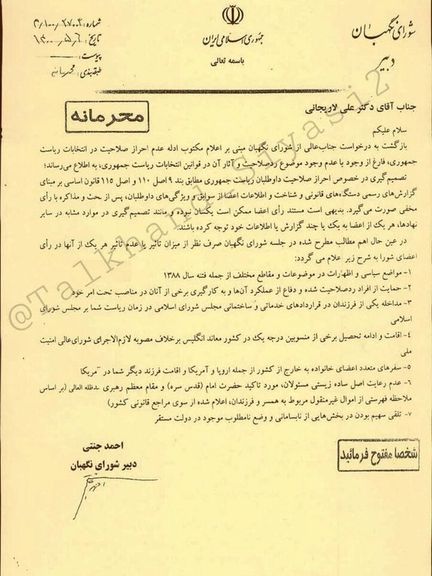 شورای نگهبان
دبیر
جمهوری اسلامی ایران
باسمه تعالی
شماره:
تاریخ:
پیوست:
طبقه‌بندی: محرمانه
محرمانه
جناب آقای دکتر علی لاریجانی
سلام علیکم
بازگشت به درخواست جناب‌عالی از شورای نگهبان مبنی بر اعلام مکتوب ادله عدم احراز صلاحیت در انتخابات ریاست
جمهوری، فارغ از وجود یا عدم وجود موضوع ردصلاحیت و آثار آن در قوانین انتخابات ریاست جمهوری، به اطلاع می‌رساند؛
تصمیم‌گیری در خصوص احراز صلاحیت داوطلبان ریاست جمهوری مطابق بند ۹ اصل ۱۱۰ و اصل ۱۱۵ قانون اساسی بر مبنای
گزارش‌های رسمی دستگاه‌های قانونی و شناخت و اطلاعات اعضا از سوابق و ویژگی‌های داوطلبان، پس از بحث و مذاکره با رأی
مخفی صورت می‌گیرد. بدیهی است مستند رأی اعضا ممکن است یکسان نبوده و مانند تصمیم‌گیری در موارد مشابه در سایر
نهادها، هر یک از اعضا به یک یا چند گزارش یا اطلاعات خود توجه کرده باشند.
در عین حال اهم مطالب مطرح شده در جلسه شورای نگهبان صرف نظر از میزان تأثیر یا عدم تأثیر هر یک از آنها در رأی
اعضای شورا به شرح زیر اعلام می گردد:
۱- مواضع سیاسی و اظهارات در موضوعات و مقاطع مختلف از جمله فتنه سال ۱۳۸۸
۲- حمایت از افراد ردصلاحیت شده و دفاع از عملکرد آن‌ها و به کارگیری برخی از آنان در مناصب تحت امر خود
۳- مداخله یکی از فرزندان در قراردادهای خدماتی و ساختمانی مجلس شورای اسلامی در زمان ریاست شما بر مجلس شورای
اسلامی
۴- اقامت و ادامه تحصیل برخی از منسوبین درجه یک در کشور معاند انگلیس برخلاف مصوبه لازم‌الاجرای شورای‌عالی امنیت
ملی
۵- سفرهای متعدد اعضای خانواده به خارج از کشور از جمله اروپا و آمریکا و اقامت فرزند دیگر شما در آمریکا
۶- عدم رعایت اصل ساده زیستی مسئولان، مورد تاکید حضرت امام (قدس سره) و مقام معظم رهبری مدظله العالی (بر اساس
ملاحظه فهرستی از اموال غیرمنقول مربوط به همسر و فرزندان، اعلام شده از سوی مراجع قانونی کشور)
۷- تلقی سهیم بودن در بخش‌هایی از نابسامانی و وضع نامطلوب موجود در دولت مستقر
احمد جنتی
دبیر شورای نگهبان
شخصا مفتوح فرمائید